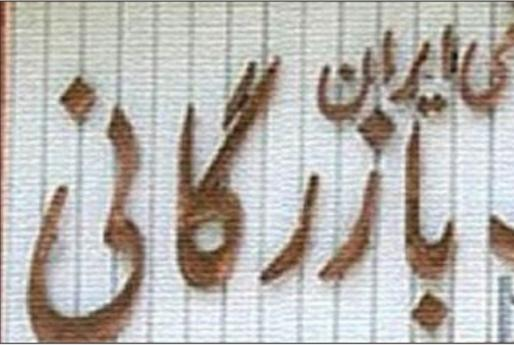 ایران
بازرگانی